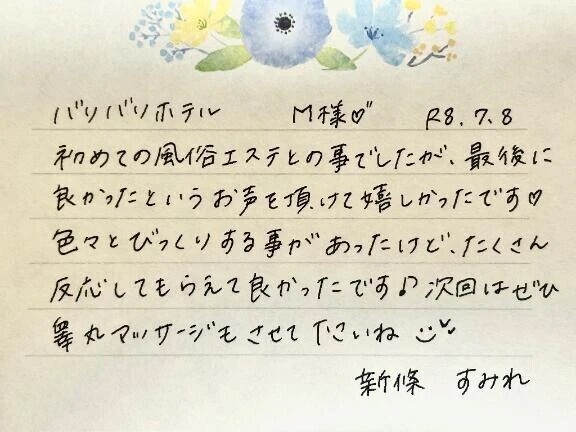 バリバリホテル M様♡ R8.7.8
初めての風俗エステとの事でしたが、最後に
良かったというお声を頂けて嬉しかったです♡
色々とびっくりする事があったけど、たくさん
反応してもらえて良かったです♪次回はぜひ
睾丸マッサージもさせて下さいね
新條 すみれ